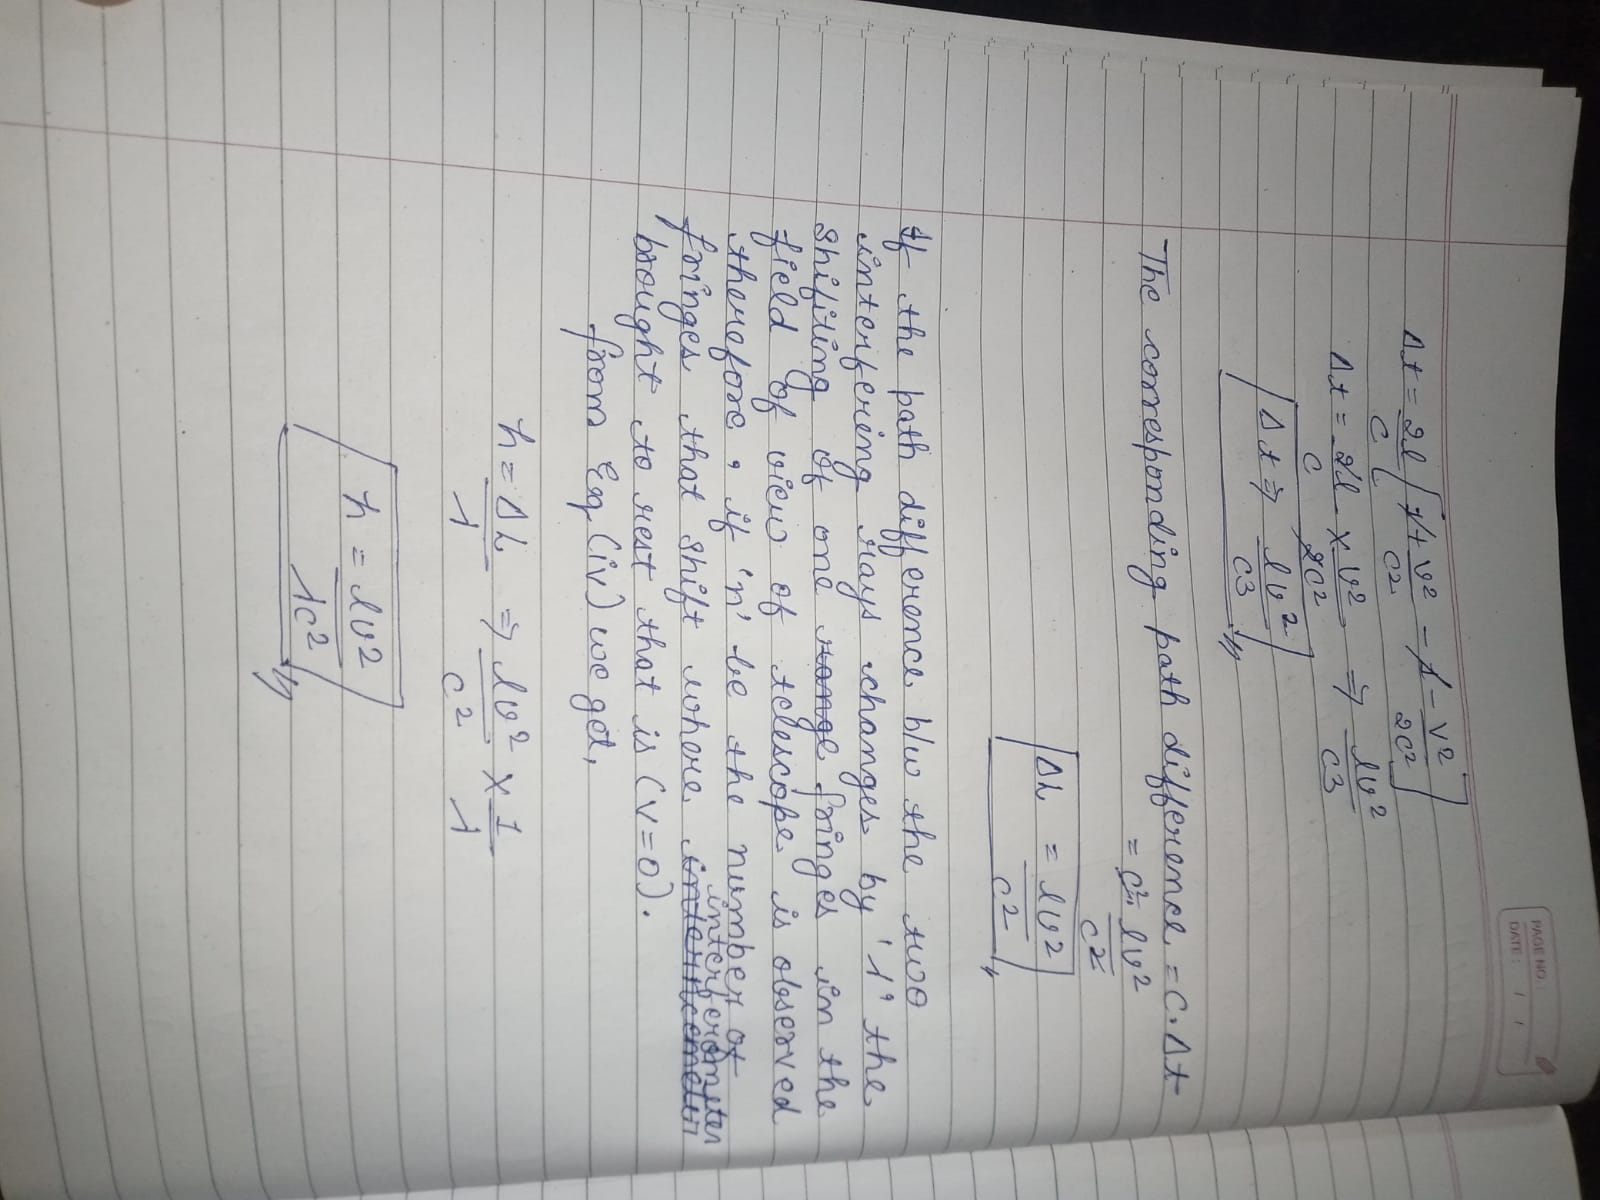 PAGE NO.:
DATE: / /
Δt = 2l/c [1 + v²/c² - 1 - v²/2c²]
Δt = 2l/c × v²/2c² ⇒ lv²/c3
Δt ⇒ lv²/c3
The corresponding path difference = C.Δt
= c lv²/c²
ΔL = lv²/c²
If the path difference b/w the two
interfering rays changes by 'λ' the
shifiting of one range fringes in the
field of view of telescope is observed
therefore, if 'n' be the number of
fringes that shift where interferometer
brought to rest that is (v=0).
from Eq (iv) we get,
n = ΔL/λ ⇒ lv²/c² × 1/λ
n = lv²/λc²